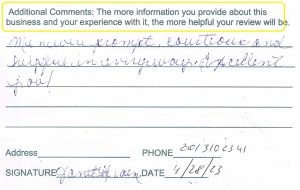 Additional Comments: The more information you provide about this
business and your experience with it, the more helpful your review will be.
prompt, courteous and
helpful in every way. Excellent
job!
Address PHONE 2013102341
SIGNATURE DATE 4/28/23